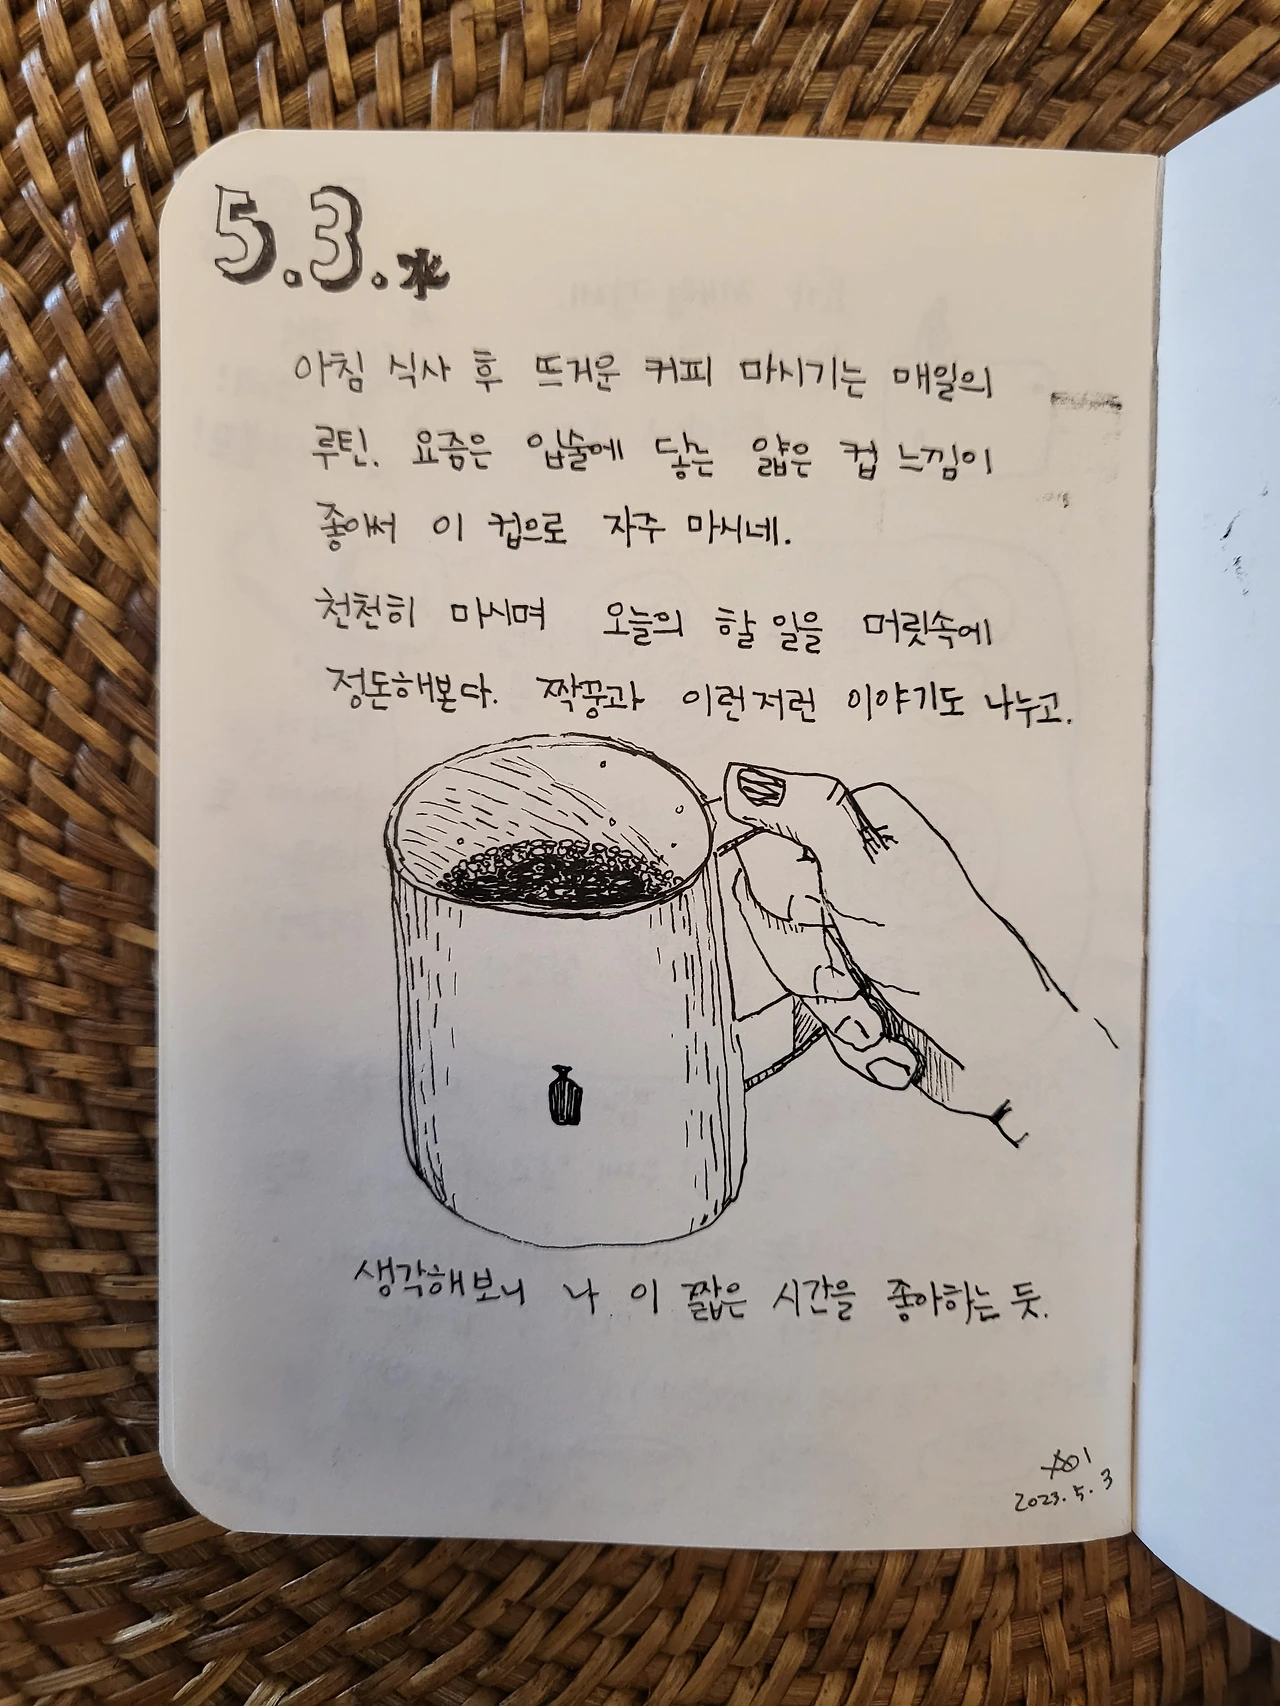 5.3.水
아침 식사 후 뜨거운 커피 마시기는 매일의
루틴. 요즘은 입술에 닿는 얇은 컵 느낌이
좋아써 이 컵으로 자주 마시네.
천천히 마시며 오늘의 할 일을 머릿속에
정돈해본다. 짝꿍과 이런저런 이야기도 나누고.
생각해보니 나 이 짧은 시간을 좋아하는 듯.
2023.5.3